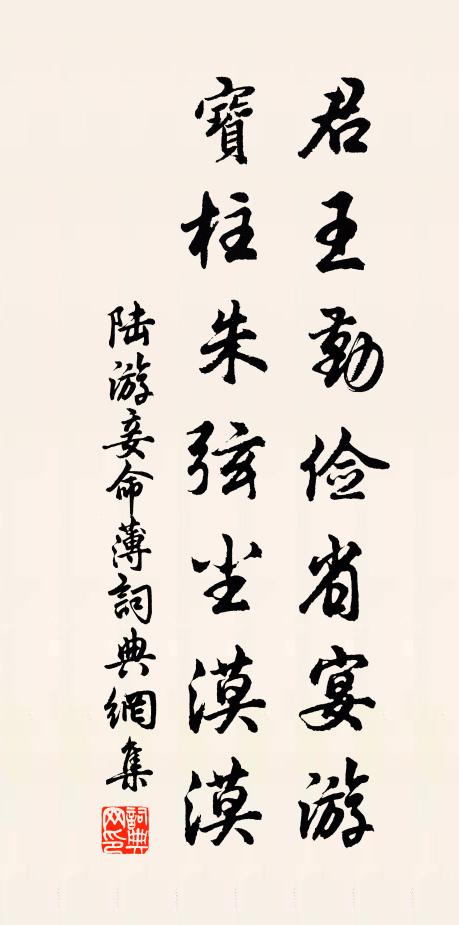 君王勤俭省宴游
寶柱朱弦尘漠漠
陆游妾命薄詞典網集
詞典网印